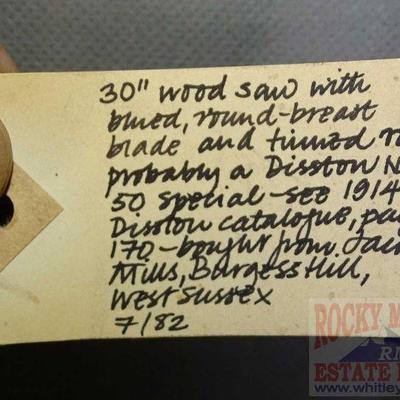 30" wood saw with
blued, round-breast
blade and tinned ro
probably a Disston N
50 special - see 1914
Disston catalogue, pa
170 - bought from
Mills, Burgess Hill,
West Sussex
7/82
ROCKY M
ESTATE
www.whitley